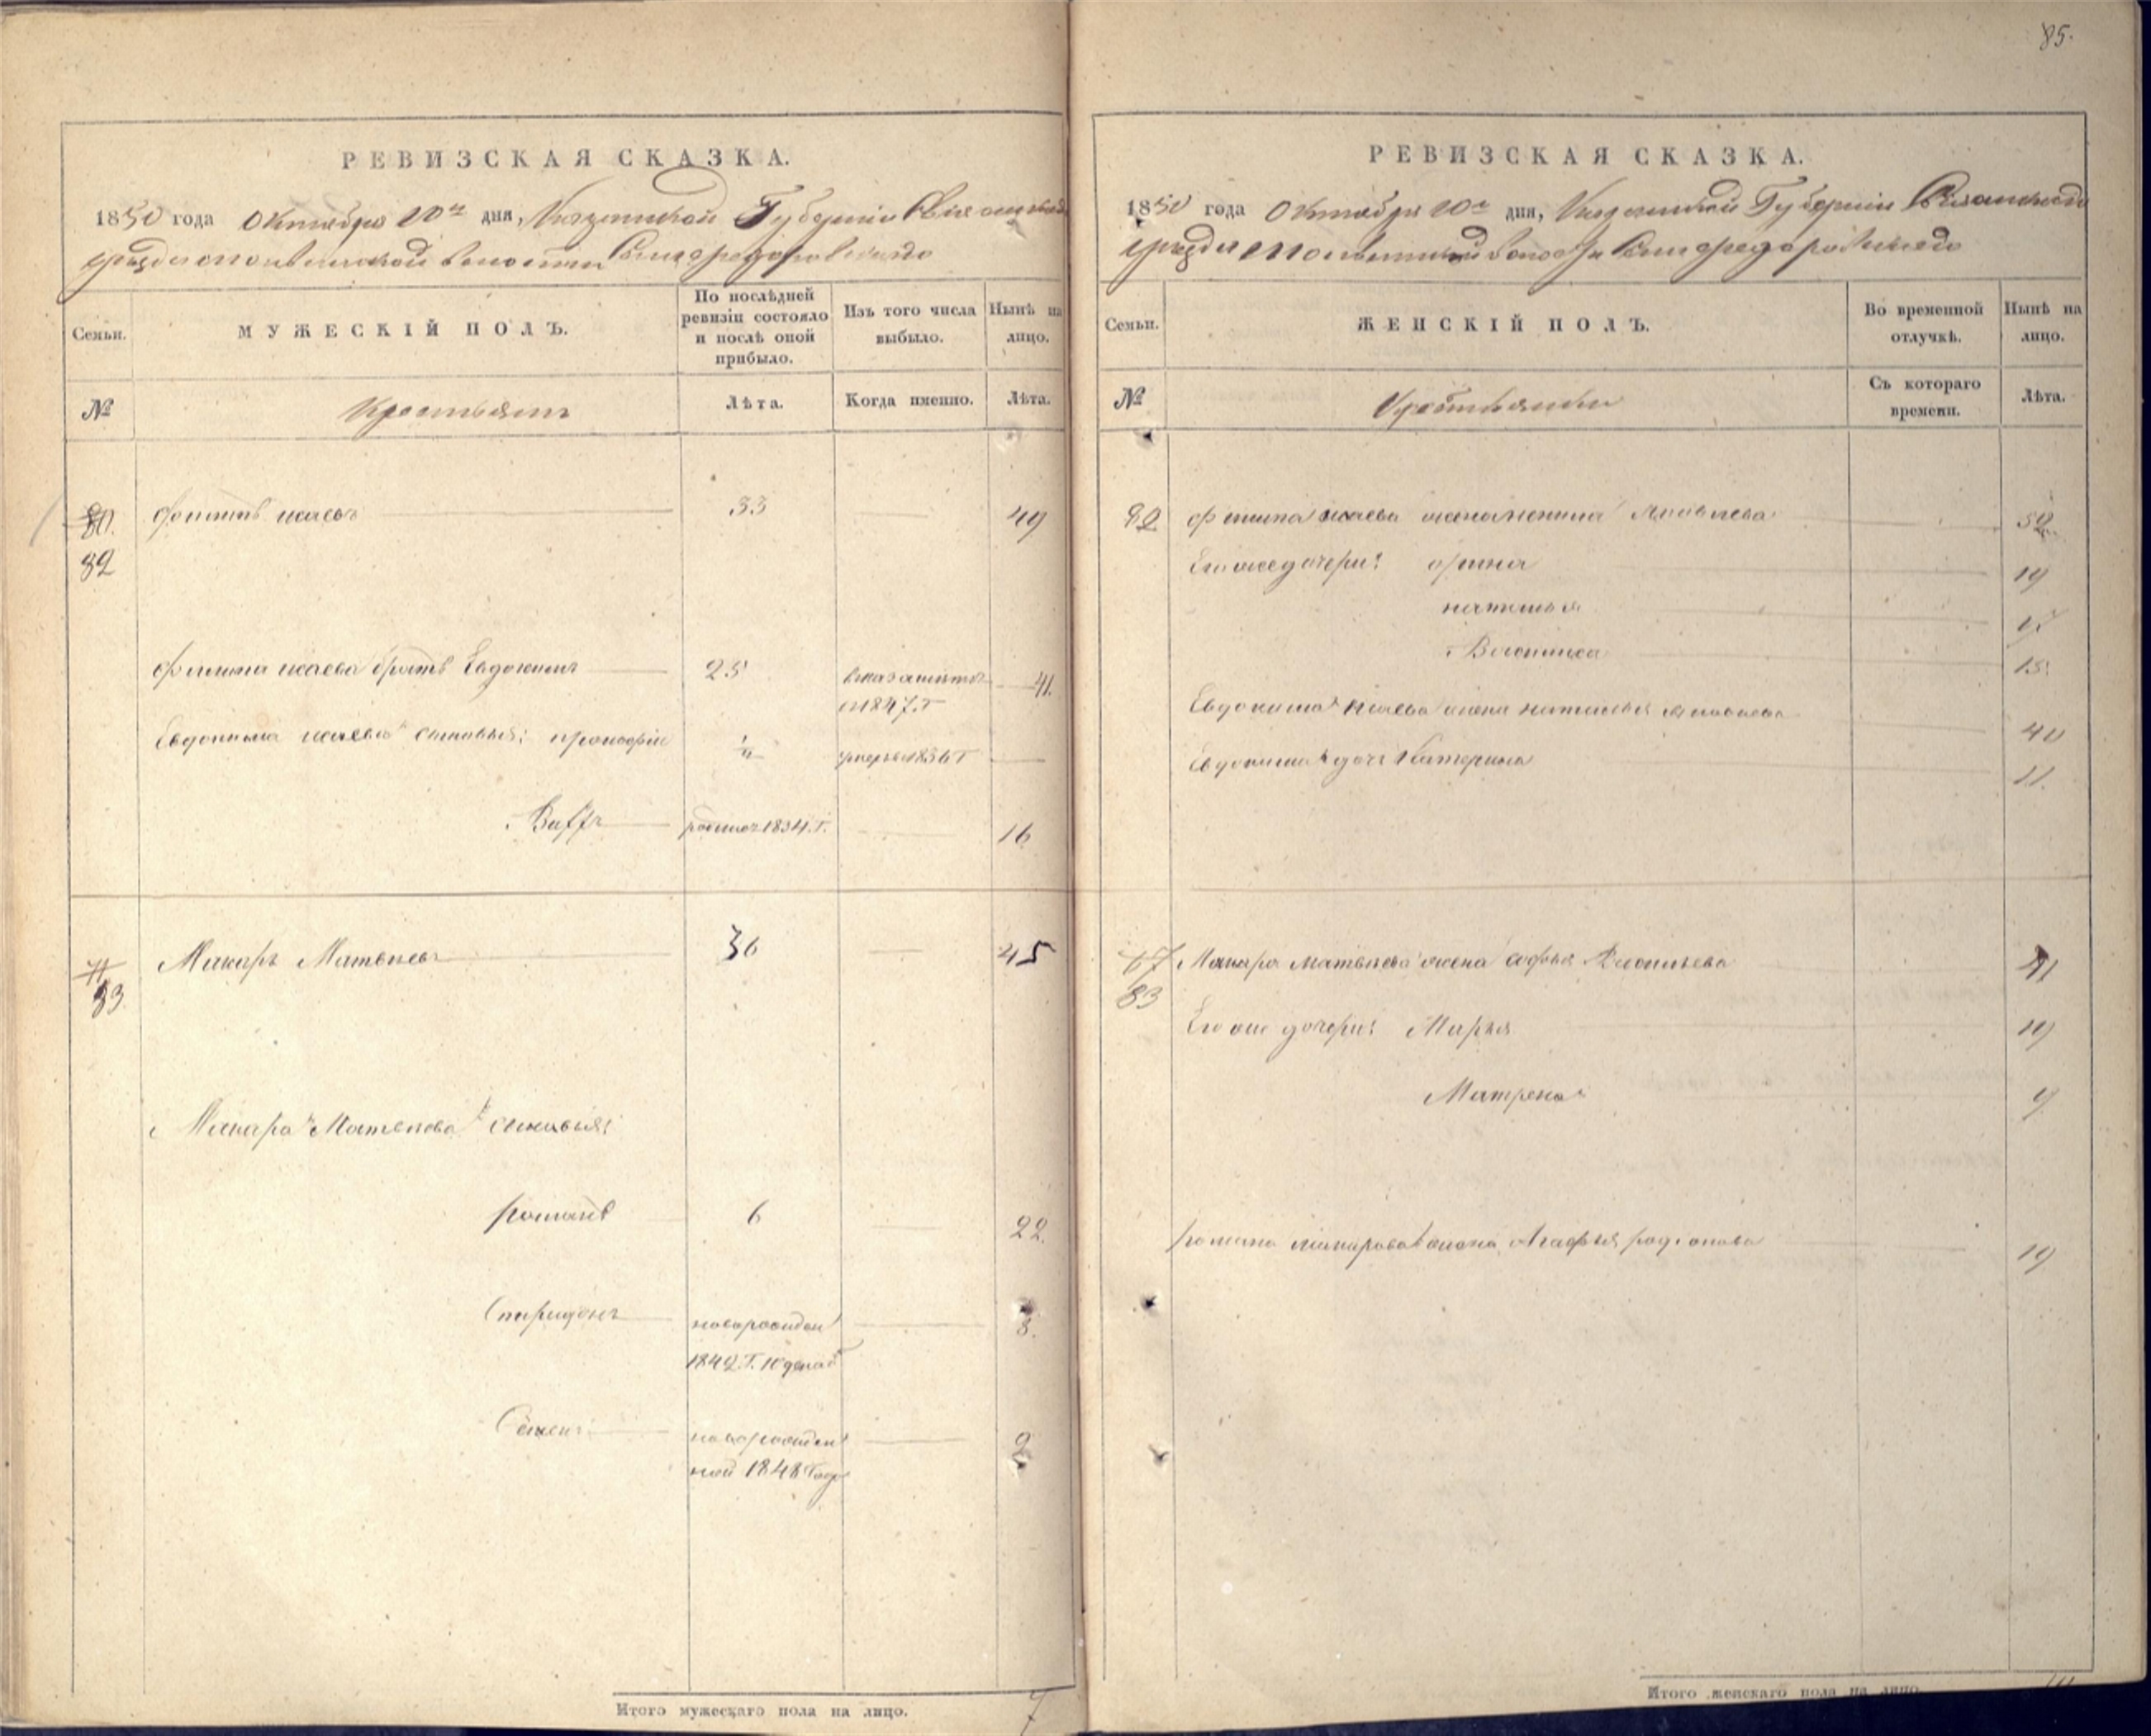 85.
РЕВИЗСКАЯ СКАЗКА.
1850 года Октября 10го дня, Казанской Губернии Свіяжскаго
уѣзда волости
Семьи.
МУЖЕСКІЙ ПОЛЪ.
По послѣдней ревизіи состояло и послѣ оной прибыло.
Изъ того числа выбыло.
Нынѣ на лицо.
№
Крестьяне
Лѣта.
Когда именно.
Лѣта.
80. Исаевъ 33 49
82
Исаева братъ Евдокимъ 25 41.
1847.г
Евдокима Исаева сыновья: Прокофій 1/4 умеръ 1836 г
родился 1834.г. 16
71 Макаръ Матвѣевъ 36 45
83.
Макара Матвѣева сыновья:
Романъ 6 22.
Спиридонъ новорожден 8.
1842.г. 10 декаб
Семенъ новорожден 2
ной 1848 года
Итого мужескаго пола на лицо. 7
РЕВИЗСКАЯ СКАЗКА.
1850 года Октября 10го дня, Казанской Губернии Свіяжскаго
уѣзда волости
Семьи.
ЖЕНСКІЙ ПОЛЪ.
Во временной отлучкѣ.
Нынѣ на лицо.
№
Крестьянки
Съ котораго времени.
Лѣта.
82 Исаева жена Яковлева 52
Его же дочери: 19
Наталья
15
Евдокима Исаева жена Наталья 40
Евдокима дочь Катерина 11.
67 Макара Матвѣева жена Софья Васильева 41
83
Его же дочери: Марья 19
Матрена 9
Романа Макарова жена Агафья Родіонова 19
Итого женскаго пола на лицо